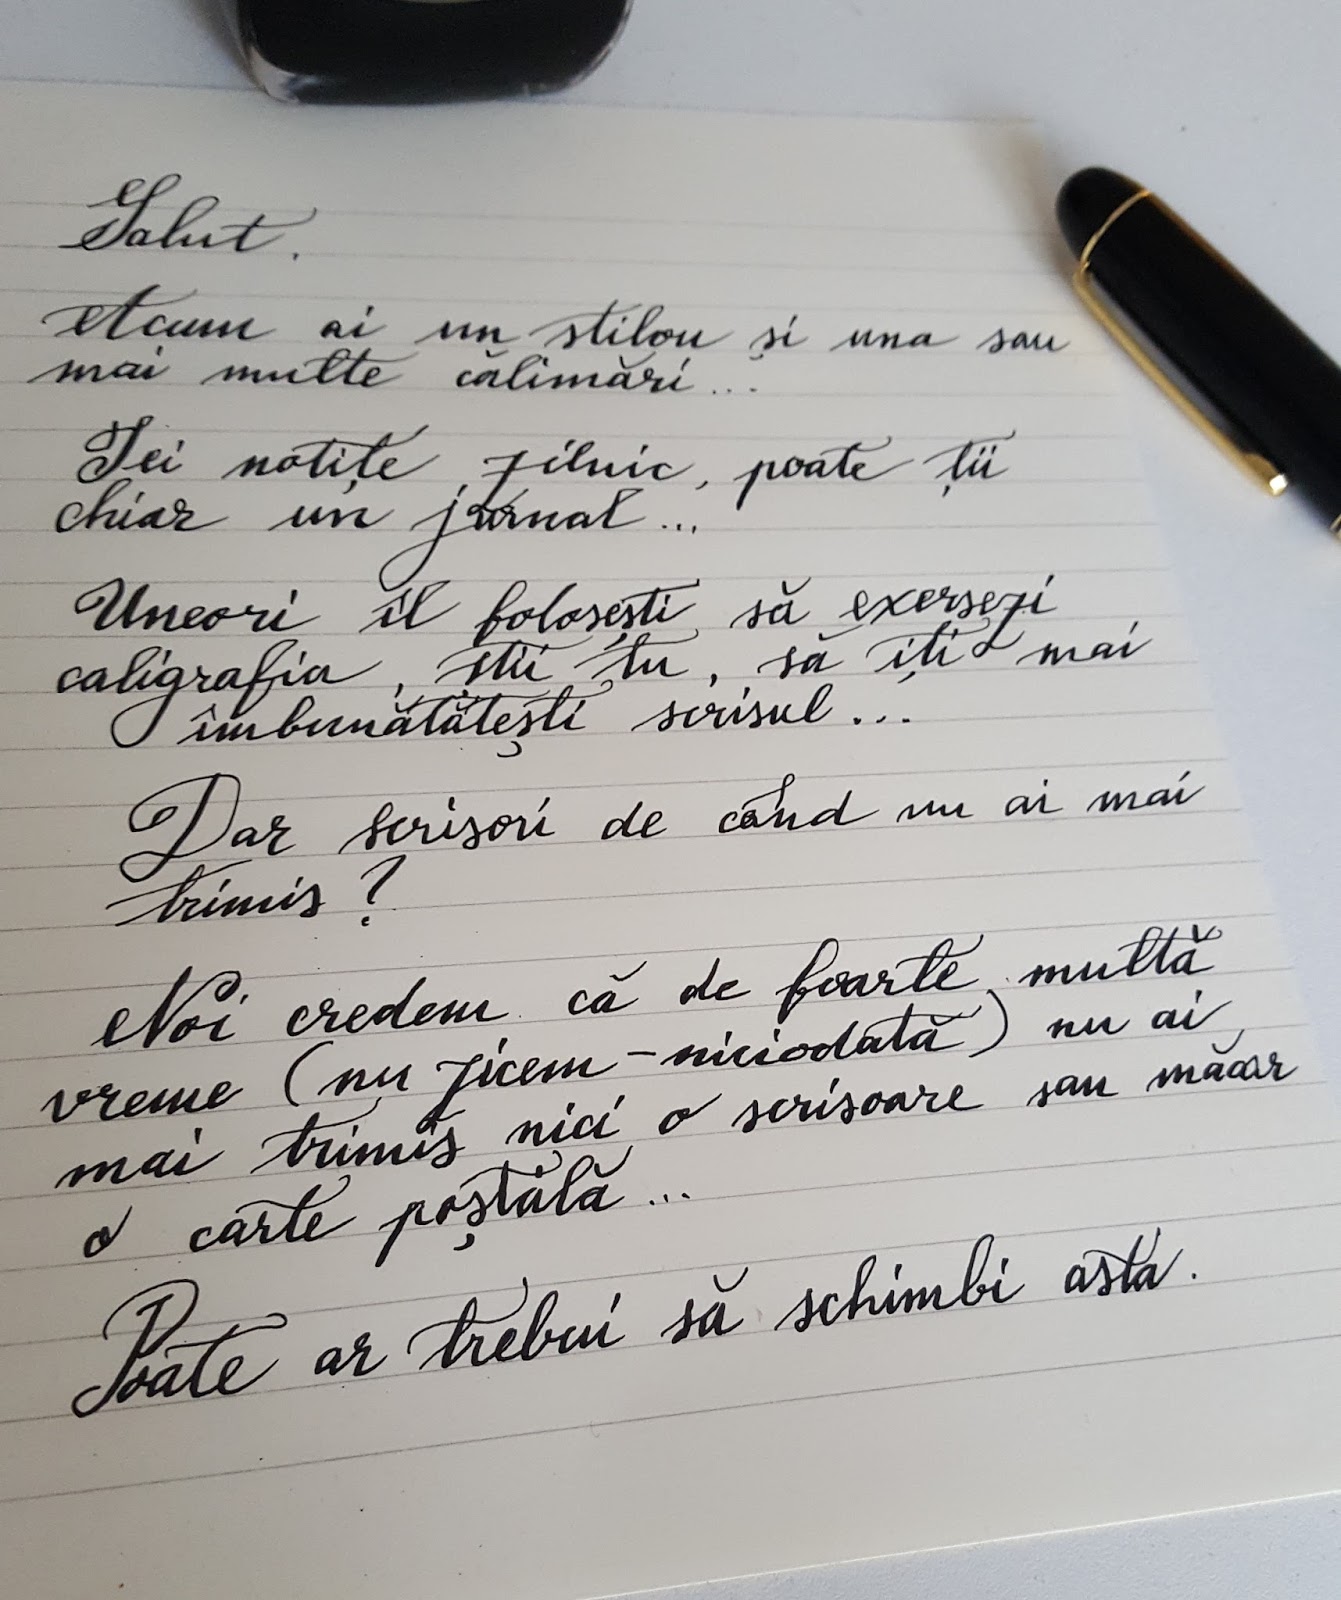 Salut.
Acum ai un stilou și una sau
mai multe călimări...
Iei notițe zilnic, poate ții
chiar un jurnal...
Uneori îl folosești să exersezi
caligrafia, știi tu, să îți mai
îmbunătățești scrisul...
Dar scrisori de când nu ai mai
trimis?
Noi credem că de foarte multă
vreme (nu zicem - niciodată) nu ai
mai trimis nici o scrisoare sau măcar
o carte poștală...
Poate ar trebui să schimbi asta.